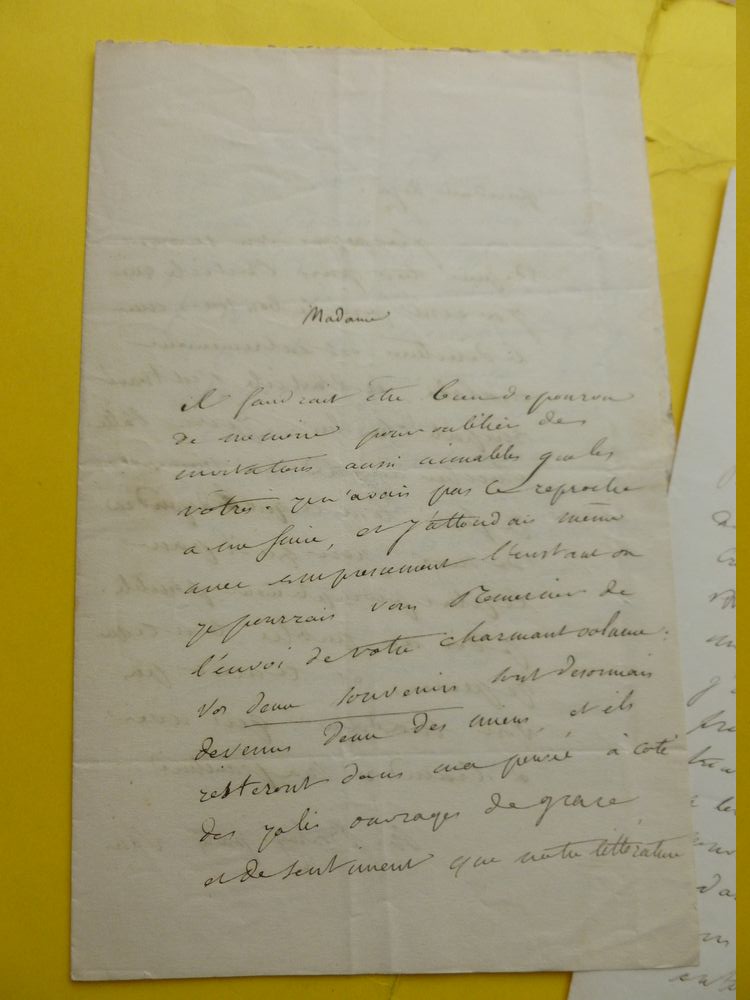 Madame
il faudrait être bien dépourvu
de memoire pour oublier des
invitations aussi aimables que les
votres: je n'avais pas ce reproche
a me faire, et j'attendais même
avec empressement l'instant ou
je pourrais vous Remercier de
l'envoi de votre charmant volume:
Vos deux souvenirs sont desormais
devenus deux des miens, et ils
resteront dans ma pensée à coté
des jolis ouvrages de grace
et de sentiment que notre littérature